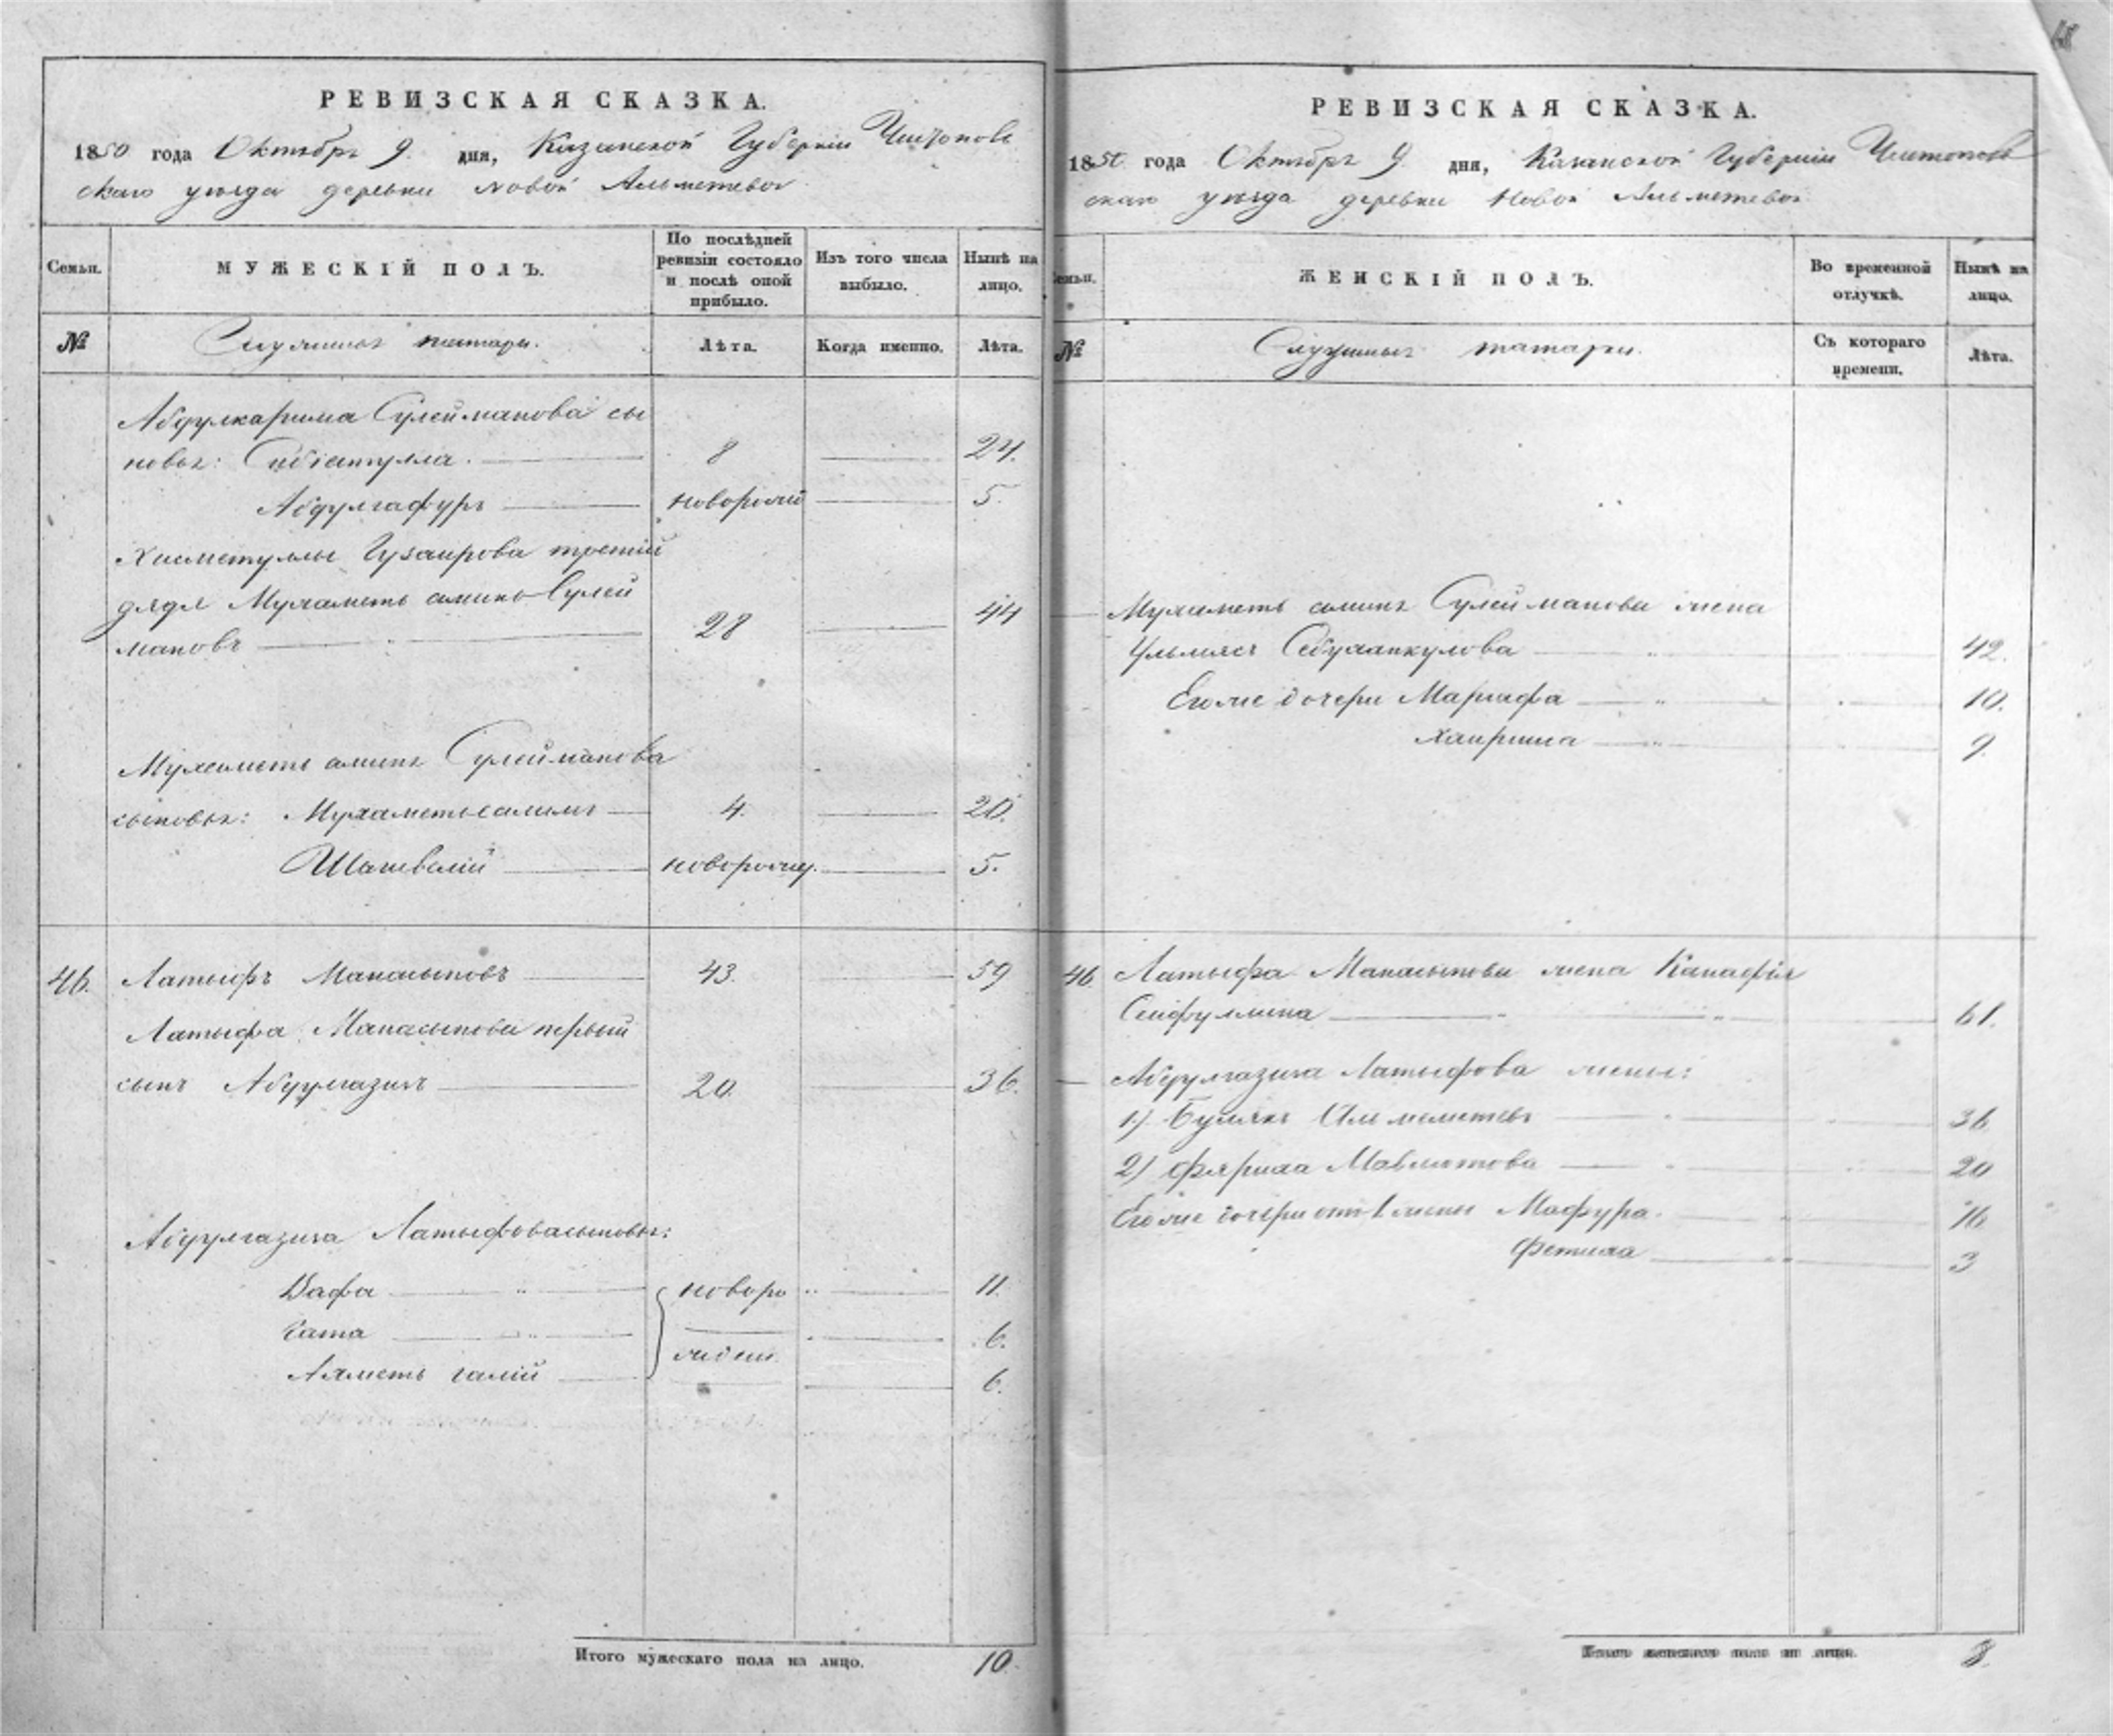 РЕВИЗСКАЯ СКАЗКА.
1850 года Октября 9. дня, Казанской Губерніи Чистополь
скаго уезда деревни Новой Альметевой
Семьи.
МУЖЕСКІЙ ПОЛЪ.
По послѣдней ревизіи состояло и послѣ оной прибыло.
Изъ того числа выбыло.
Нынѣ на лицо.
№
татары.
Лѣта.
Когда именно.
Лѣта.
Абдулкарима Сулейманова сы
новья: Сибіатулла. 8 24.
Абдулгафуръ 5.
Хисметуллы Гузаирова третій
дядя Мухаметь аминъ Сулей
мановъ 28 44
Мухаметь аминъ Сулейманова
сыновья: Мухаметьсалимъ 4. 20.
Шагивалій новорожд. 5.
46. Латыфъ Манасыповъ 43. 59
Латыфа Манасыпова первый
сынъ Абдулгазизъ 20. 36.
Абдулгазиза Латыфова сыновья:
Вафа новоро 11.
Гата 6.
Ахметь галій 6.
Итого мужескаго пола на лицо. 10.
РЕВИЗСКАЯ СКАЗКА.
1850 года Октября 9. дня, Казанской Губерніи Чистополь
скаго уезда деревни Новой Альметевой
Семьи.
ЖЕНСКІЙ ПОЛЪ.
Во временной отлучкѣ.
Нынѣ на лицо.
№
татары.
Съ котораго времени.
Лѣта.
Мухаметь аминъ Сулейманова жена
42.
Его же дочери Марзафа 10.
9.
46. Латыфа Манасыпова жена Канафія
Сейфуллина 61.
Абдулгазиза Латыфова жены:
1.) Булякъ 36
2) Фариха Мавлютова 20
Его же дочери от 1 жены Мафура. 16
Фетиха 3
Итого женскаго пола на лицо. 8.